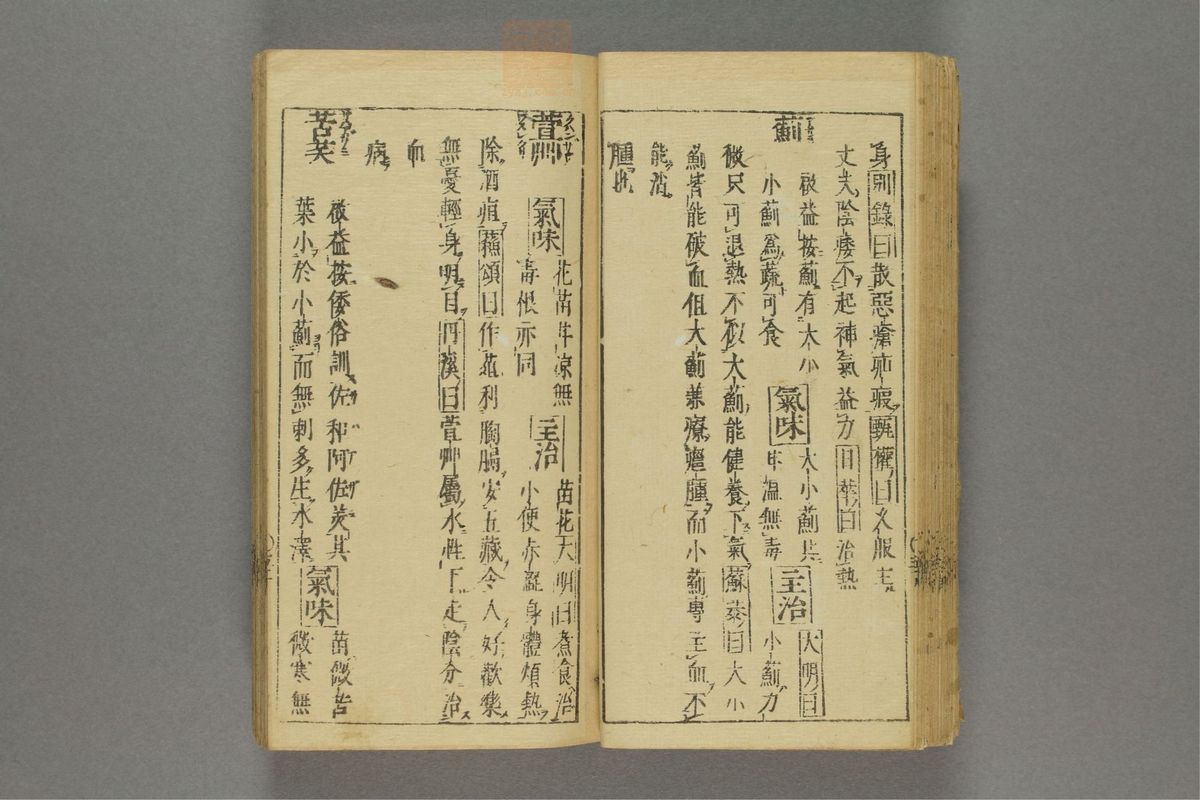 身別錄曰散惡瘡疝瘕甄權曰久服主
丈夫陰痿不起補氣益力日華曰治熱
薊
啟益按薊有大小
小薊為蔬可食
氣味
大小薊共
甘溫無毒
主治
大明曰
小薊力
微只可退熱不似大薊能健養下氣蘇恭曰大小
薊皆能破血但大薊兼療癰腫而小薊專主血不
能消
腫也
萱艸
氣味
花苗甘凉無
毒根亦同
主治
苗花大明曰煮食治
小便赤澀身體煩熱
除酒疸蘇頌曰作菹利胸膈安五藏令人好歡樂
無憂輕身明目丹溪曰萱艸屬水性下走陰分治
血
病
苦芙
啟益按倭俗訓佐和阿佐美其
葉小於小薊而無刺多生水澤
氣味
苗微苦
微寒無